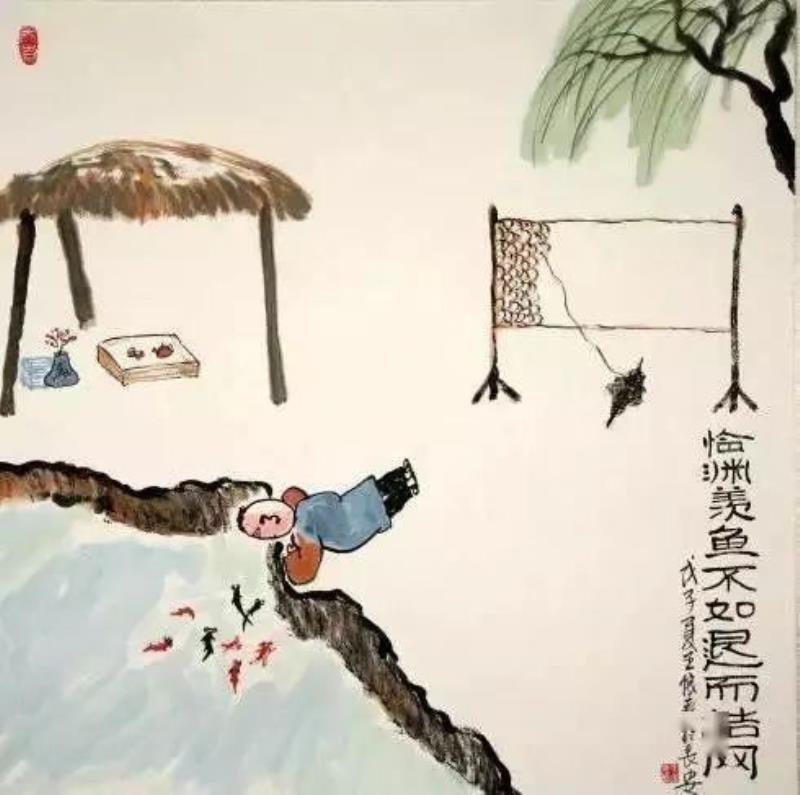 临渊羡鱼不如退而结网
戊子夏王
于长安